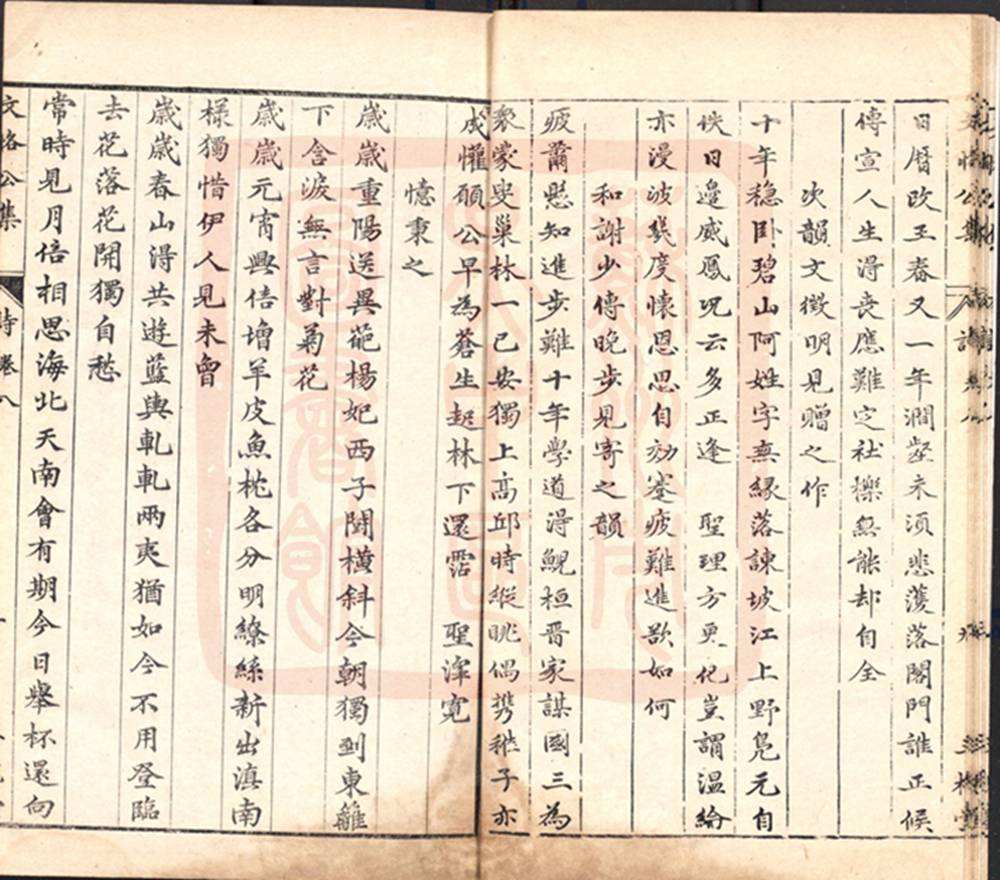 日曆改王春又一年澗壑未須悲濩落閣門誰正候
傳宣人生得喪應難定社櫟無能却自全
次韻文徴明見贈之作
十年穏卧碧山阿姓字無縁落諫坡江上野凫元自
快日邊威鳳况云多正逢 聖理方更化豈謂温綸
亦漫波幾度懷恩思自効蹇疲難進歎如何
和謝少傳晚步見寄之韻
疲薾懸知進步難十年學道得鯢桓晋家謀國三為
衆蒙叟巢林一已安獨上高邱時縱眺偶携稚子亦
成懽願公早為蒼生起林下還霑 聖澤寛
憶秉之
歳歳重陽送異葩楊妃西子鬭横斜今朝獨到東籬
下含淚無言對菊花
歳歳元宵興倍增羊皮魚枕各分明繚絲新出滇南
様獨惜伊人見未曾
歳歳春山得共遊藍輿軋軋兩爽猶如今不用登臨
去花落花開獨自愁
常時見月倍相思海北天南會有期今日舉杯還向
文恪公集 詩卷八